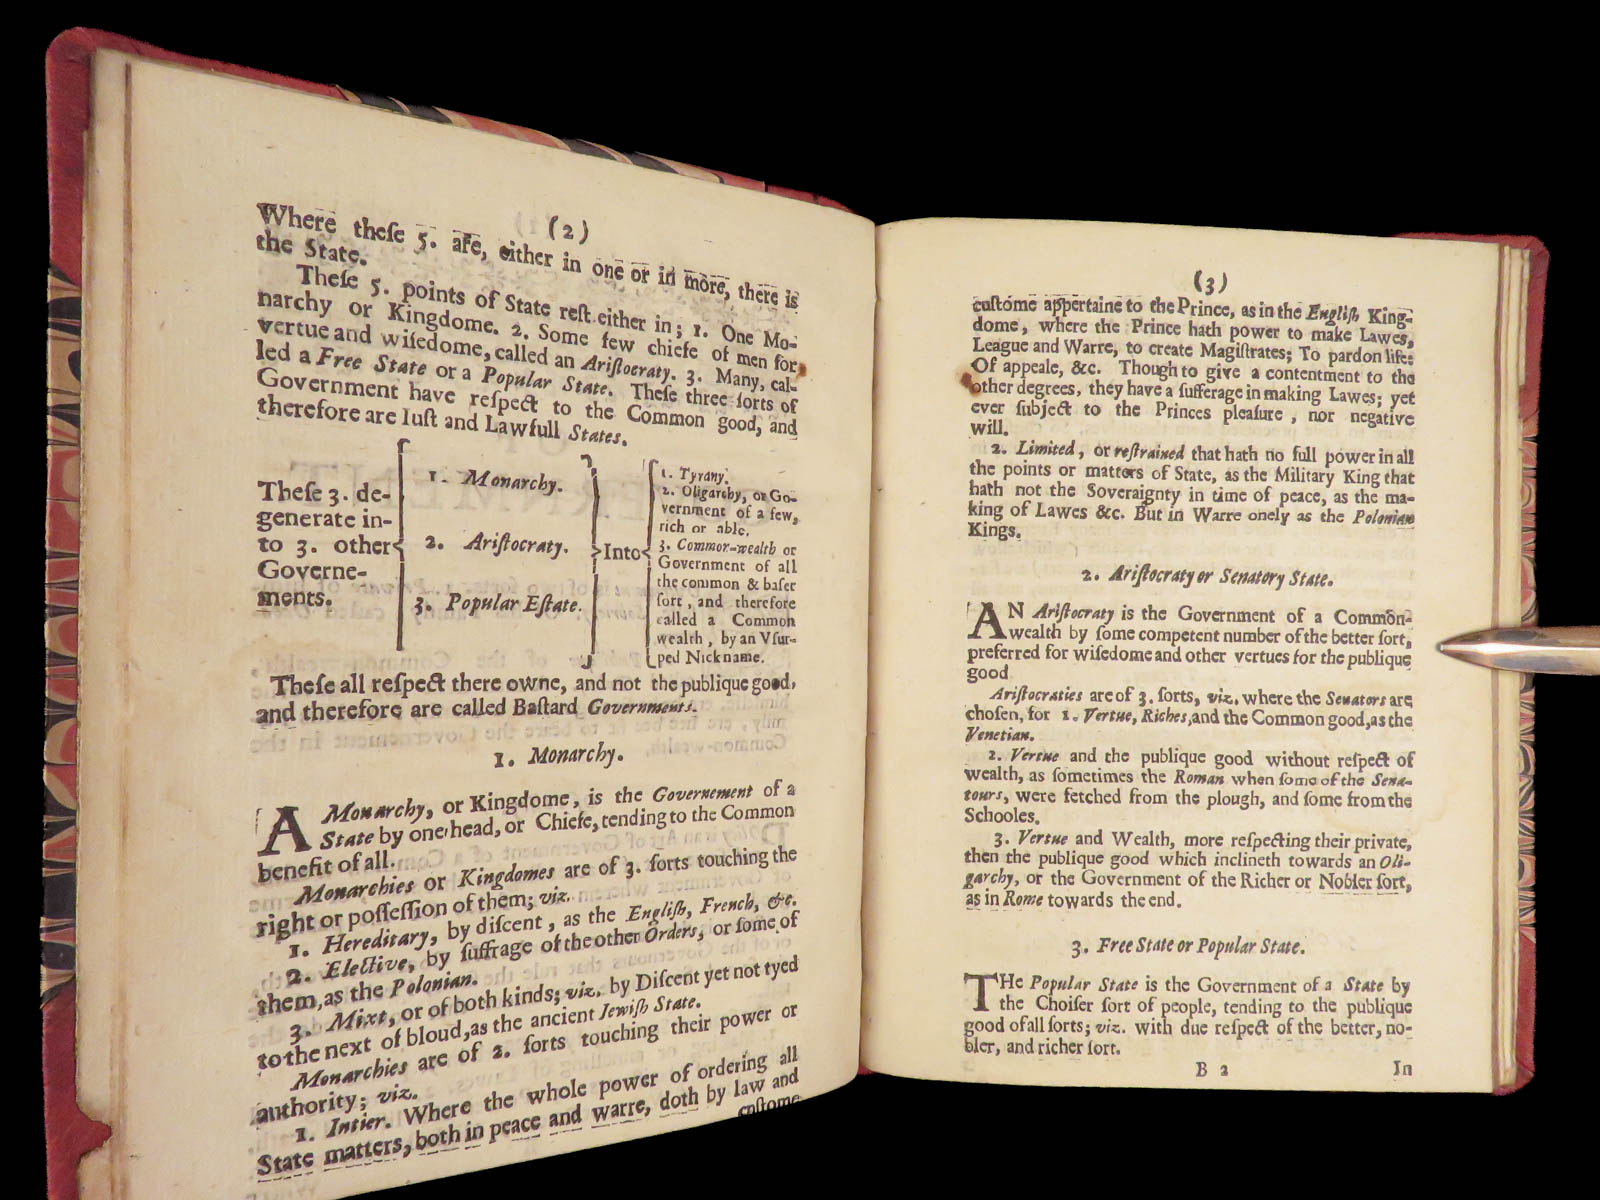 (2)
Where theſe 5. are, either in one or in more, there is
the State.
Theſe 5. points of State reſt either in; 1. One Mo-
narchy or Kingdome. 2. Some few chiefe of men for
vertue and wiſedome, called an Ariſtocraty. 3. Many, cal-
led a Free State or a Popular State. Theſe three ſorts of
Government have reſpect to the Common good, and
therefore are Iuſt and Lawfull States.
Theſe 3. de-
generate in-
to 3. other
Governe-
ments.
1. Monarchy.
2. Ariſtocraty.
3. Popular Eſtate.
Into
1. Tyrany.
2. Oligarchy, or Go-
vernment of a few,
rich or able.
3. Common-wealth or
Government of all
the common & baſer
ſort, and therefore
called a Common
wealth, by an Vſur-
ped Nickname.
Theſe all reſpect there owne, and not the publique good,
and therefore are called Baſtard Governments.
1. Monarchy.
A Monarchy, or Kingdome, is the Governement of a
State by one head, or Chiefe, tending to the Common
benefit of all.
Monarchies or Kingdomes are of 3. ſorts touching the
right or poſſeſſion of them; viz.
1. Hereditary, by diſcent, as the Engliſh, French, &c.
2. Elective, by ſuffrage of the other Orders, or ſome of
them, as the Polonian.
3. Mixt, or of both kinds; viz. by Diſcent yet not tyed
to the next of bloud, as the ancient Jewiſh State.
Monarchies are of 2. ſorts touching their power or
authority; viz.
1. Intier. Where the whole power of ordering all
State matters, both in peace and warre, doth by law and
cuſtome
(3)
cuſtome appertaine to the Prince, as in the Engliſh King-
dome, where the Prince hath power to make Lawes,
League and Warre, to create Magiſtrates; To pardon life:
Of appeale, &c. Though to give a contentment to the
other degrees, they have a ſufferage in making Lawes; yet
ever ſubject to the Princes pleaſure, nor negative
will.
2. Limited, or reſtrained that hath no full power in all
the points or matters of State, as the Military King that
hath not the Soveraignty in time of peace, as the ma-
king of Lawes &c. But in Warre onely as the Polonian
Kings.
2. Ariſtocraty or Senatory State.
AN Ariſtocraty is the Government of a Common-
wealth by ſome competent number of the better ſort,
preferred for wiſedome and other vertues for the publique
good
Ariſtocraties are of 3. ſorts, viz. where the Senators are
choſen, for 1. Vertue, Riches, and the Common good, as the
Venetian.
2. Vertue and the publique good without reſpect of
wealth, as ſometimes the Roman when ſome of the Sena-
tours, were fetched from the plough, and ſome from the
Schooles.
3. Vertue and Wealth, more reſpecting their private,
then the publique good which inclineth towards an Oli-
garchy, or the Government of the Richer or Nobler ſort,
as in Rome towards the end.
3. Free State or Popular State.
THe Popular State is the Government of a State by
the Choiſer ſort of people, tending to the publique
good of all ſorts; viz. with due reſpect of the better, no-
bler, and richer ſort.
B 2 In